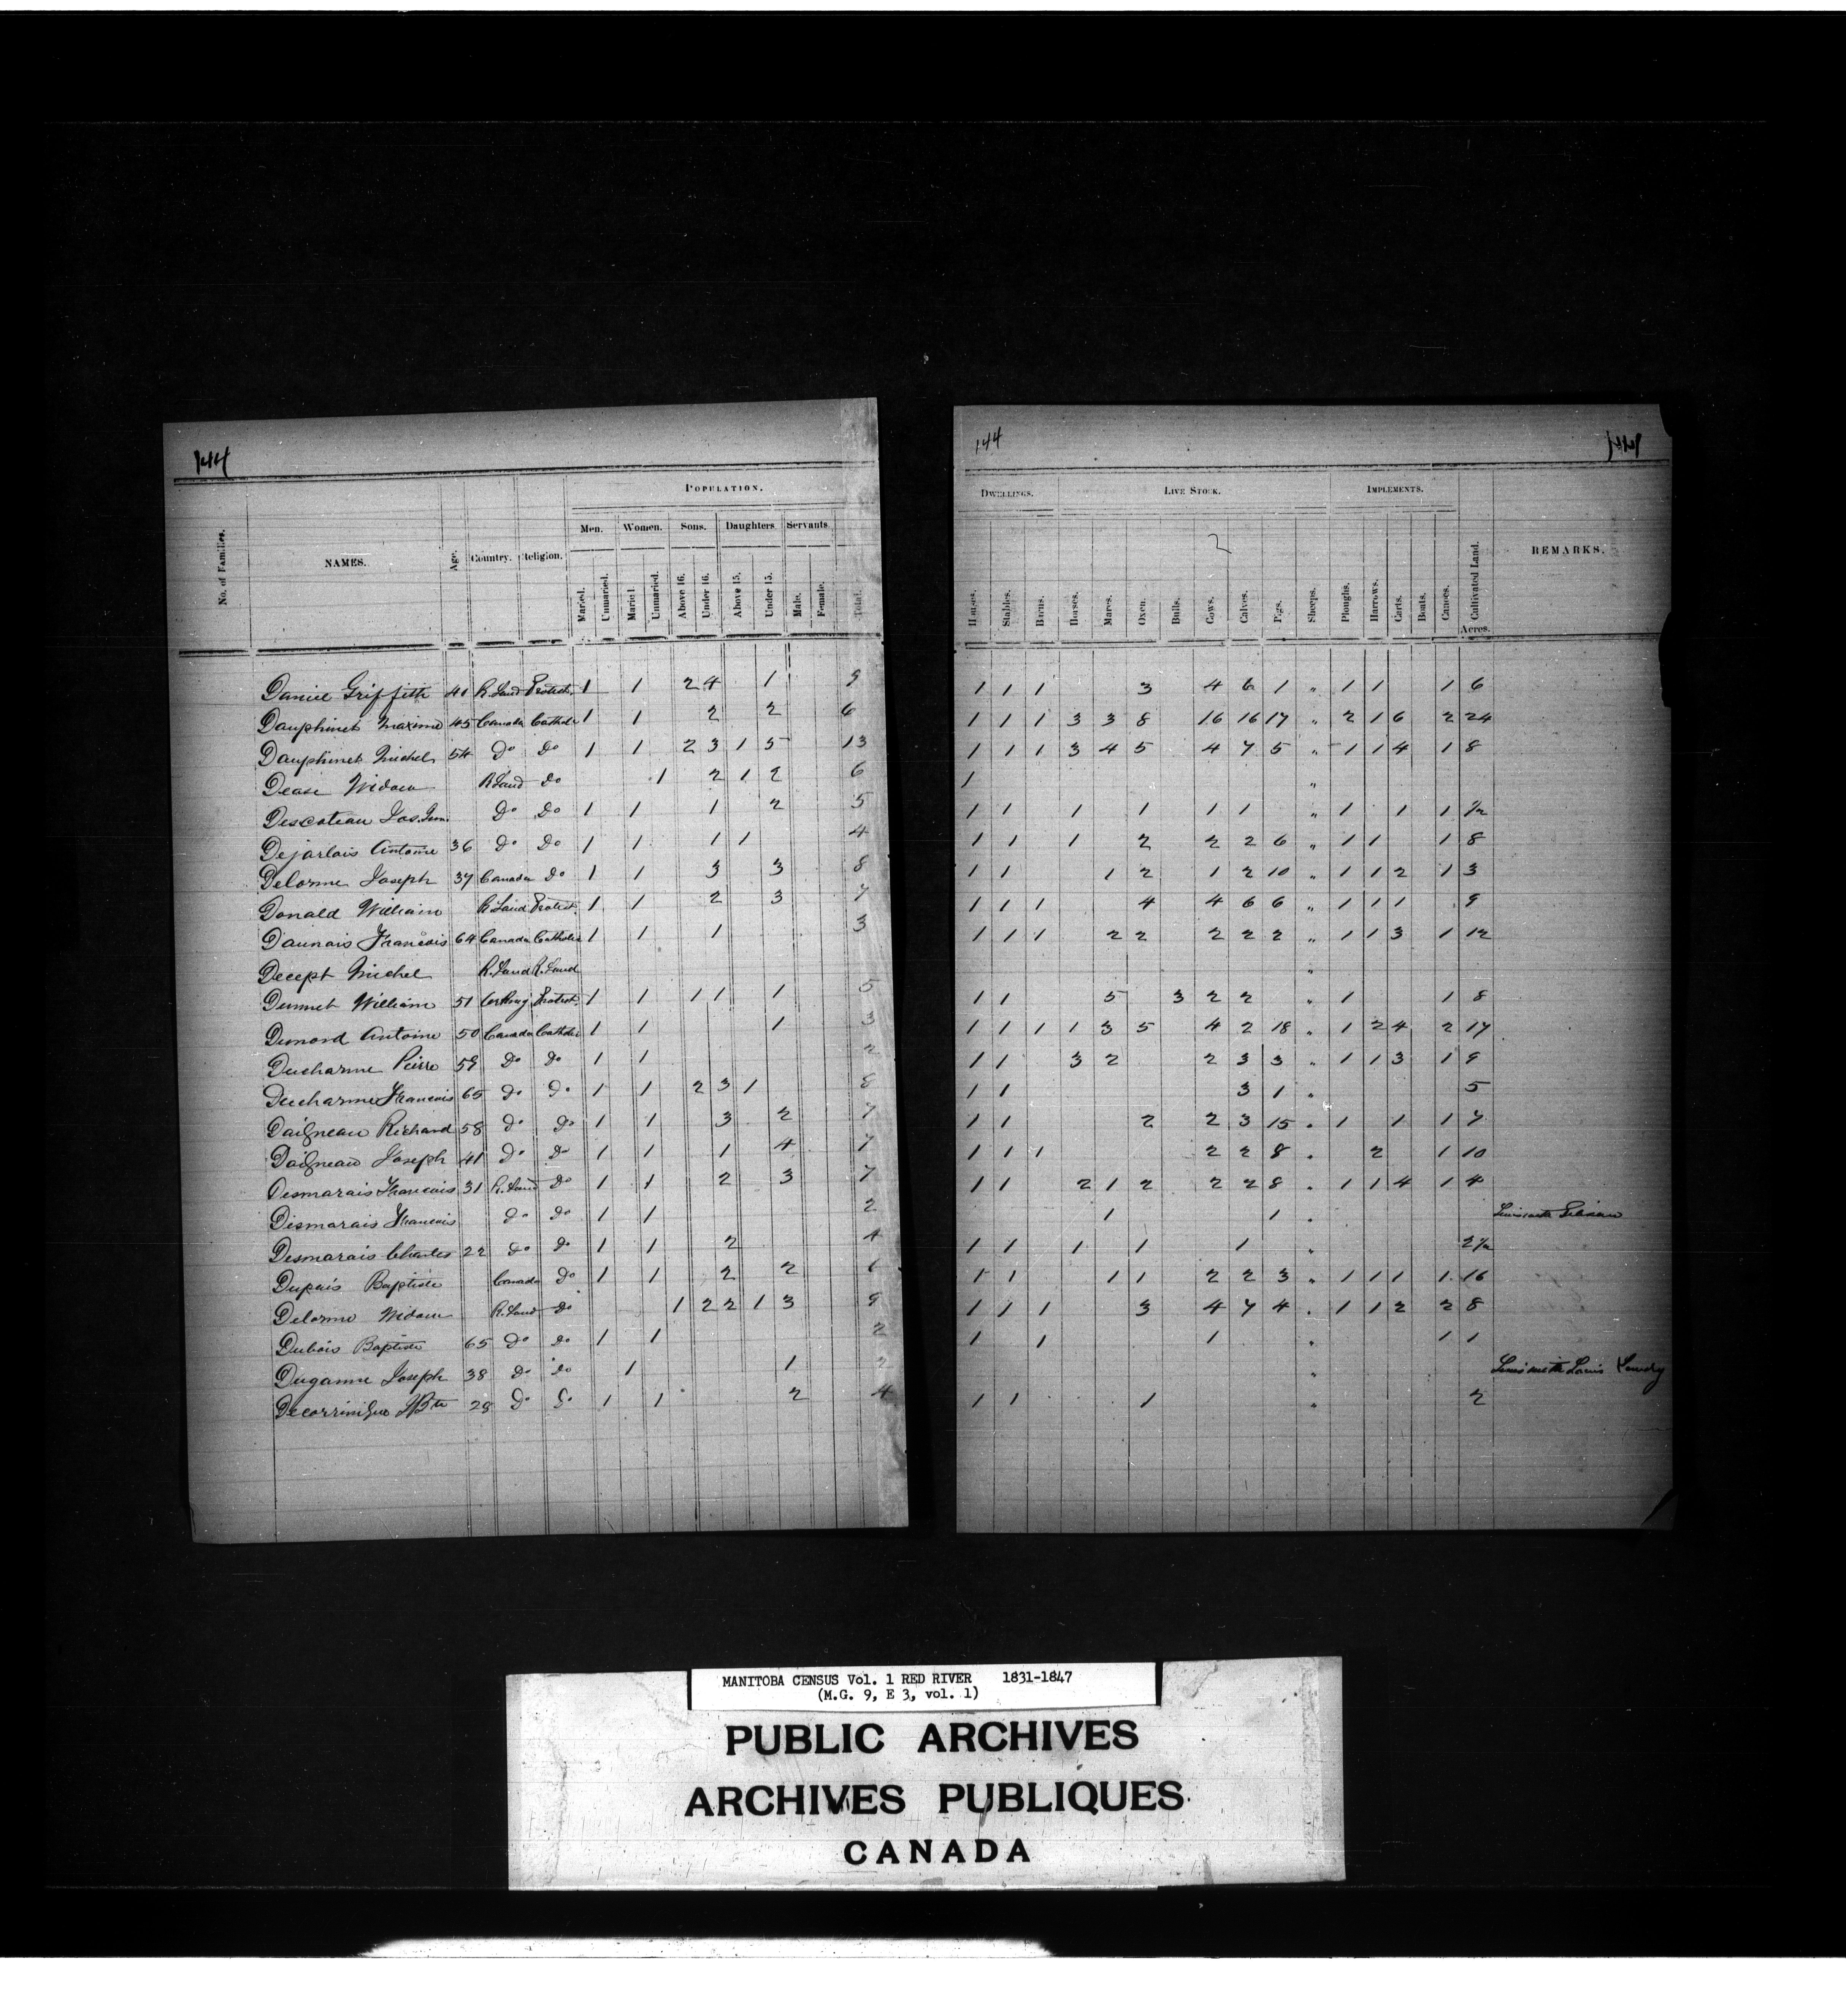 144
POPULATION.
Men. Women. Sons. Daughters Servants
No. of Families. NAMES. Age. Country. Religion. Maried. Unmaried. Maried. Unmaried. Above 16. Under 16. Above 15. Under 15. Male. Female. Total.
Daniel Griffith 41 R. Land Protest. 1 1 2 4 1 9
Dauphinet Maxime 45 Canada Catholic 1 1 2 2 6
Dauphinet Michel 54 Do Do 1 1 2 3 1 5 13
Dease Widow R Land do 1 2 1 2 6
Descoteau Jos. Do Do 1 1 1 2 5
Dejarlais Antoine 36 do Do 1 1 1 1 4
Delorme Joseph 37 Canada do 1 1 3 3 8
Donald William R. Land Protest. 1 1 2 3 7
Daunais Francois 64 Canada Catholic 1 1 1 3
Decept Michel R. Land R. Land
Dunnet William 51 Protest. 1 1 1 1 1 5
Dumond Antoine 50 Canada Catholic 1 1 1 3
Ducharme Pierre 59 do do 1 1 2
Ducharme Francois 65 do Do 1 1 2 3 1 8
Daigneau Richard 58 do do 1 1 3 2 7
Daigneau Joseph 41 do do 1 1 1 4 7
Desmarais Francois 31 R. Land do 1 1 2 3 7
Desmarais Francois do do 1 1 2
Desmarais Charles 22 do do 1 1 2 4
Dupuis Baptiste Canada do 1 1 2 2 6
Delorme Widow R. Land do 1 2 2 1 3 9
Dubois Baptiste 65 do do 1 1 2
Duganne Joseph 38 do do 1 1 2
JBte 28 do do 1 1 2 4
144 144
DWELLINGS. LIVE STOCK. IMPLEMENTS.
2
Houses. Stables. Barns. Horses. Mares. Oxen. Bulls. Cows. Calves. Pigs. Sheeps. Ploughs. Harrows. Carts. Boats. Canoes. Cultivated Land. REMARKS.
Acres.
1 1 1 3 4 6 1 " 1 1 1 6
1 1 1 3 3 8 16 16 17 " 2 1 6 2 24
1 1 1 3 4 5 4 7 5 " 1 1 4 1 8
1 "
1 1 1 1 1 1 " 1 1 1 1/2
1 1 1 2 2 2 6 " 1 1 1 8
1 1 1 2 1 2 10 " 1 1 2 1 3
1 1 1 4 4 6 6 " 1 1 1 9
1 1 1 2 2 2 2 2 " 1 1 3 1 12
"
1 1 5 3 2 2 " 1 1 8
1 1 1 1 3 5 4 2 18 " 1 2 4 2 17
1 1 3 2 2 3 3 " 1 1 3 1 9
1 1 3 1 " 5
1 1 2 2 3 15 " 1 1 1 7
1 1 1 2 2 8 " 2 1 10
1 1 2 1 2 2 2 8 " 1 1 4 1 4
1 1 "
1 1 1 1 1 " 2 1/2
1 1 1 1 2 2 3 " 1 1 1 1 16
1 1 1 3 4 7 4 " 1 1 2 2 8
1 1 1 " 1 1
" Lives with Louis
1 1 1 " 2
MANITOBA CENSUS Vol. 1 RED RIVER 1831-1847
(M.G. 9, E 3, vol. 1)
PUBLIC ARCHIVES
ARCHIVES PUBLIQUES
CANADA